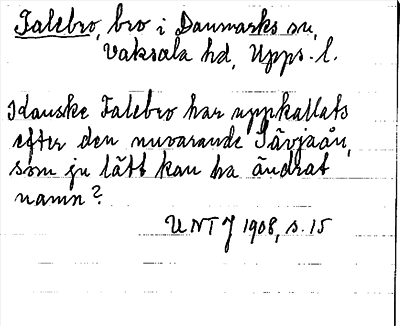 Falebro, bro i Danmarks sn,
Vaksala hd, Upps. l.
Kanske Falebro har uppkallats
efter den nuvarande Sävjaån,
som ju lätt kan ha ändrat
namn?
UNTJ 1908, s. 15